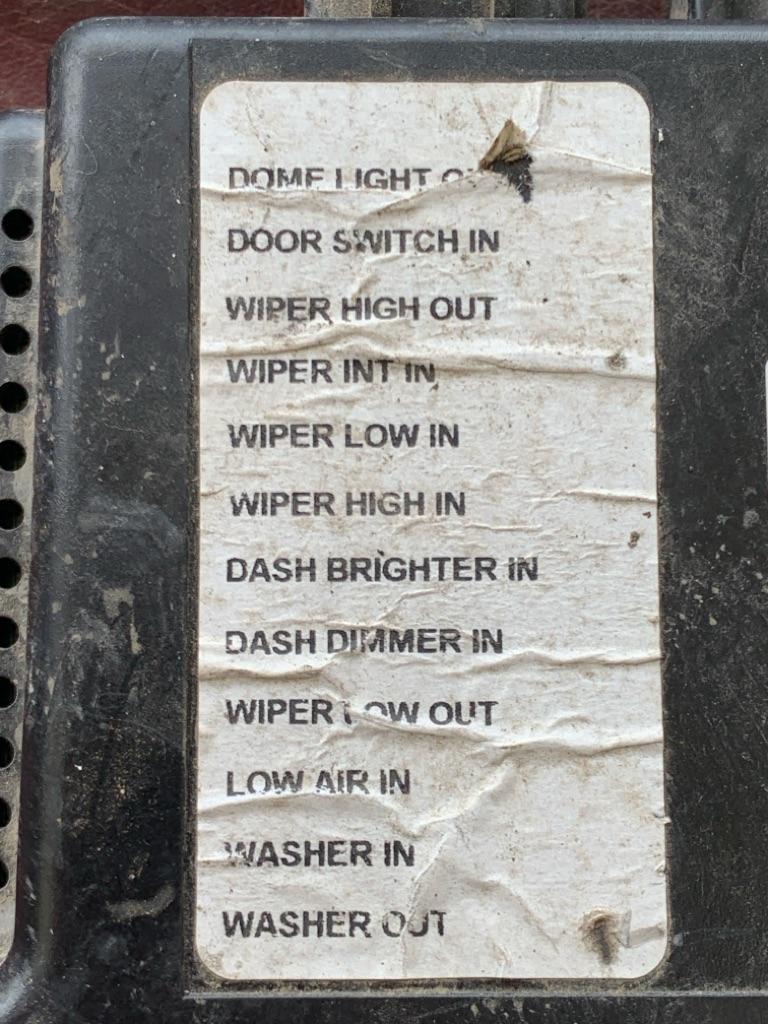 DOME LIGHT
DOOR SWITCH IN
WIPER HIGH OUT
WIPER INT IN
WIPER LOW IN
WIPER HIGH IN
DASH BRIGHTER IN
DASH DIMMER IN
WIPER LOW OUT
LOW AIR IN
WASHER IN
WASHER OUT